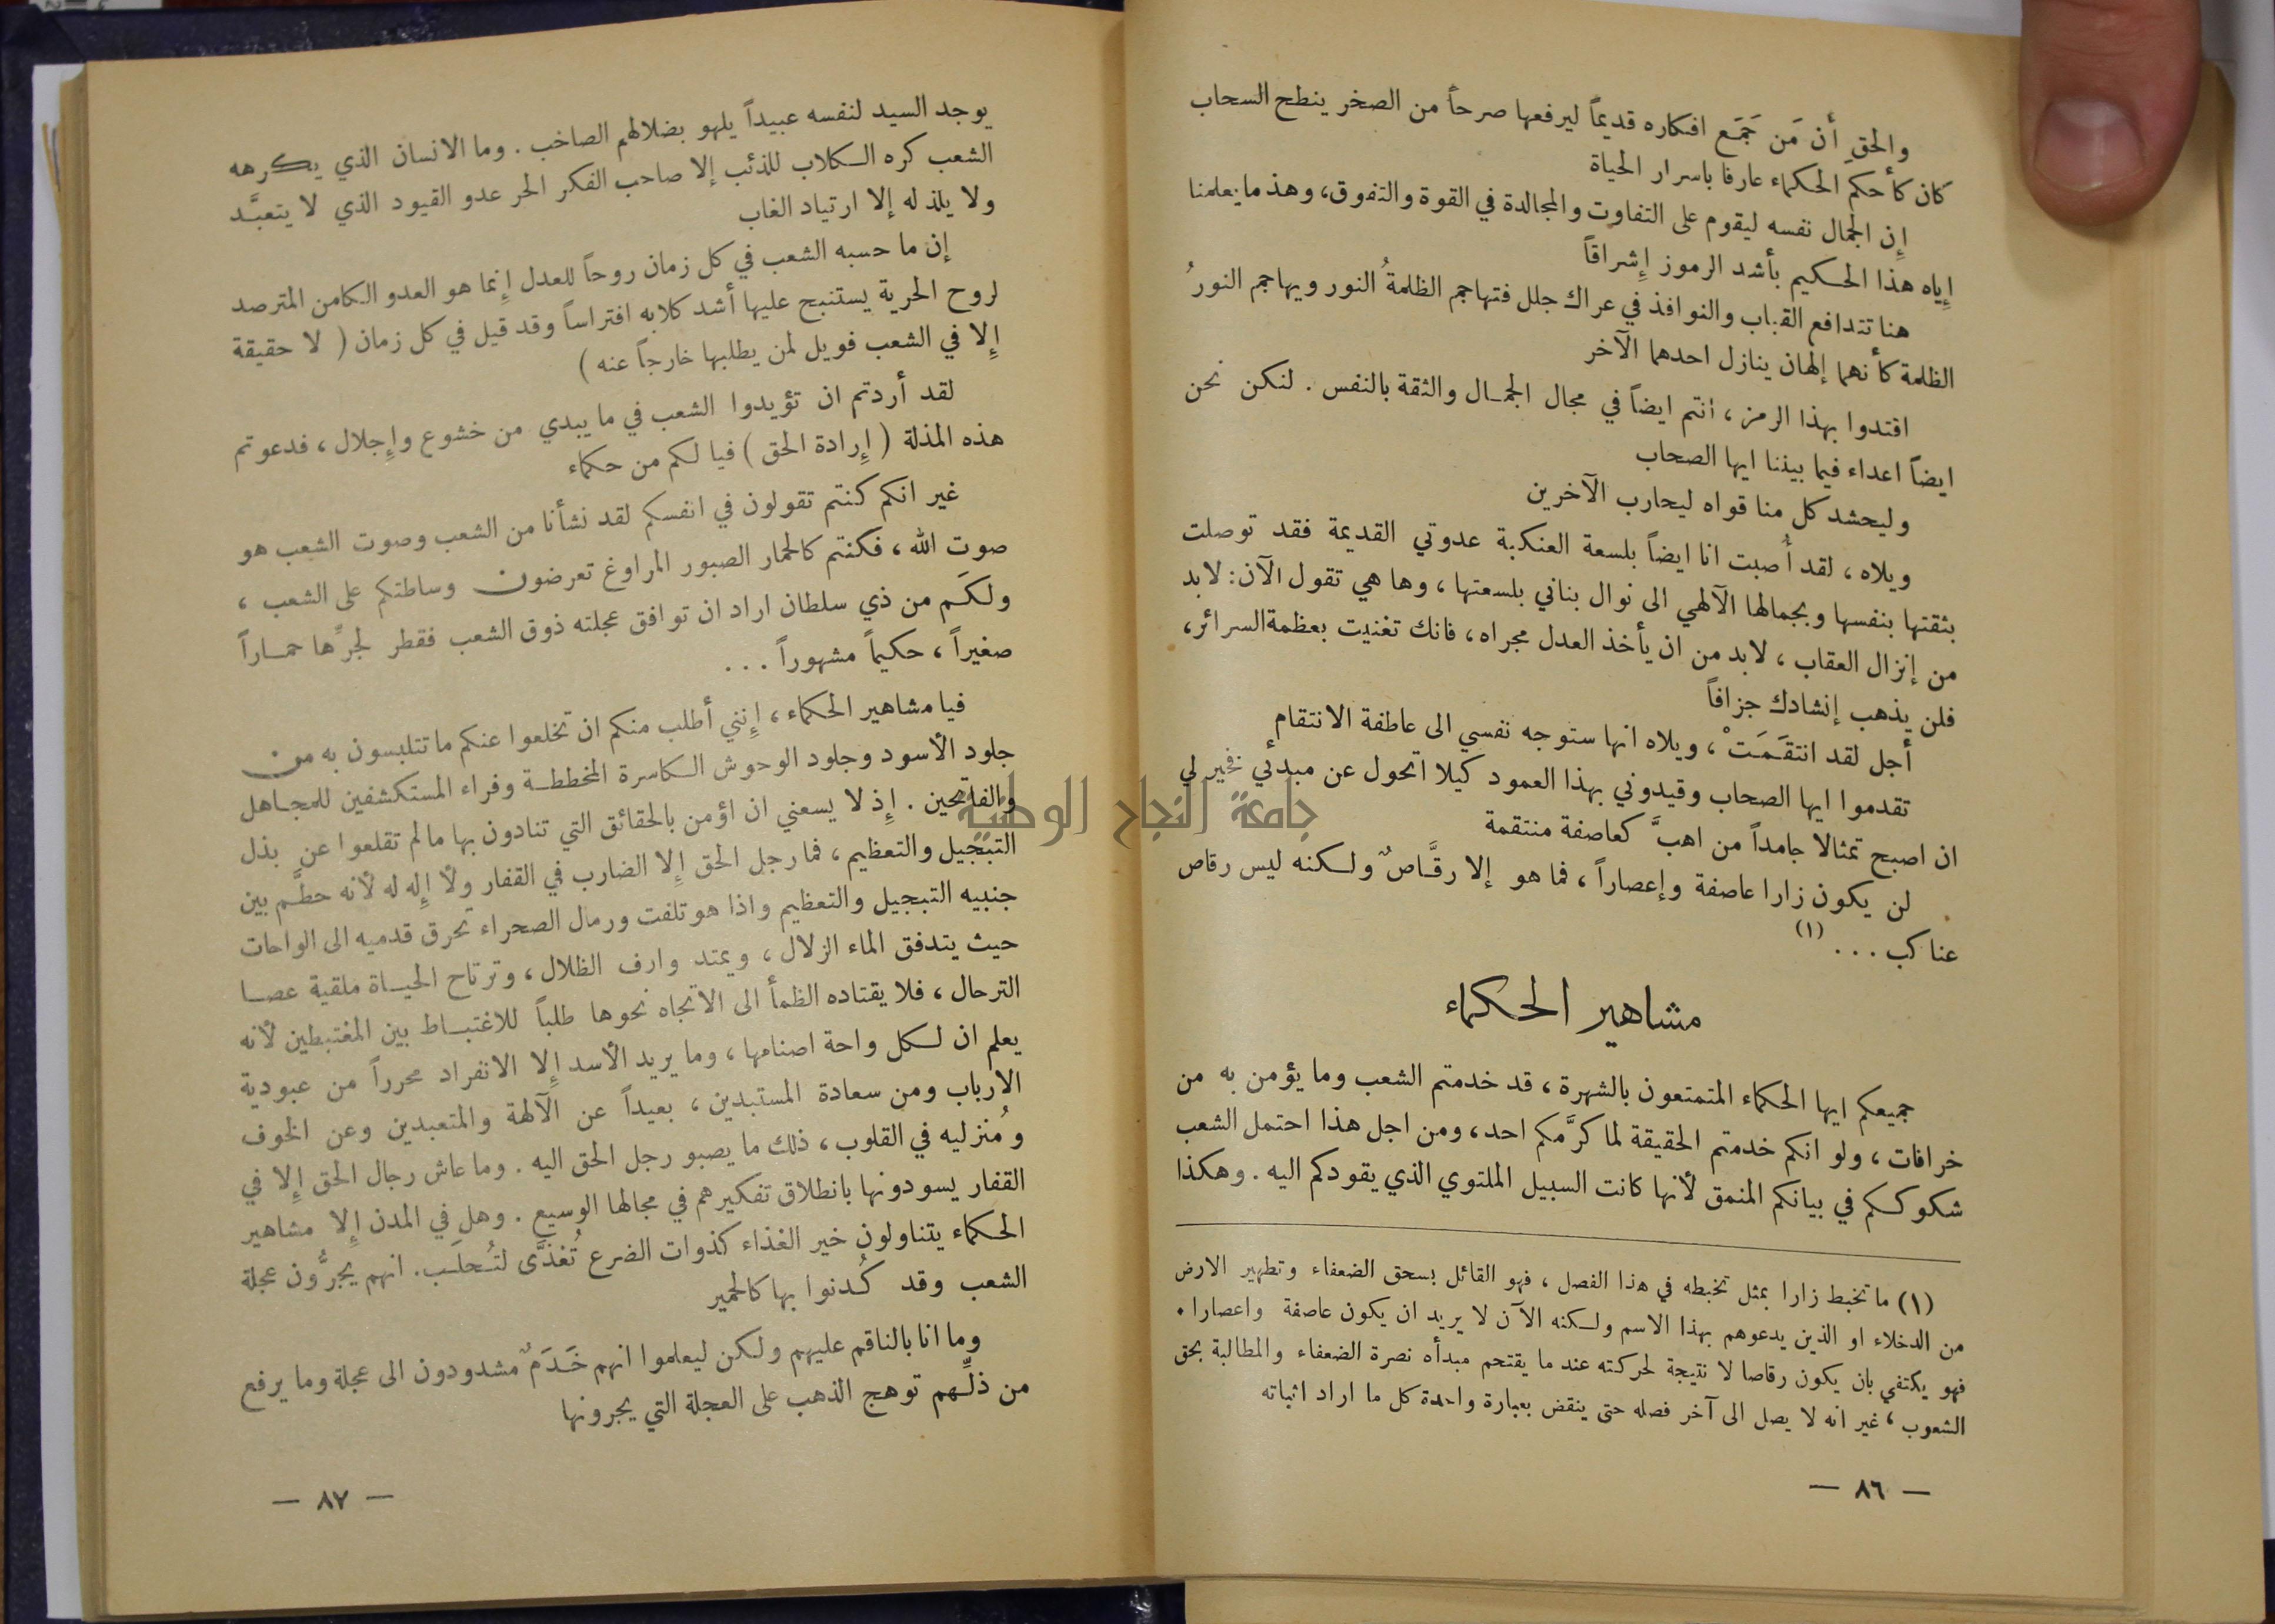 والحق أن مَن جَمَع افكاره قديماً ليرفعها صرحاً من الصخر ينطح السحاب
كان كأحكم الحكماء عارفا باسرار الحياة
إِن الجمال نفسه ليقوم على التفاوت والمجالدة في القوة والتفوق، وهذ ما يعلمنا
إِياه هذا الحكيم بأشد الرموز إِشراقاً
هنا تتدافع القباب والنوافذ في عراك جلل فتهاجم الظلمةُ النور ويهاجم النورُ
الظلمة كأنهما إلهان ينازل احدهما الآخر
اقتدوا بهذا الرمز، انتم ايضاً في مجال الجمال والثقة بالنفس . لنكن نحن
ايضاً اعداء فيما بيننا ايها الصحاب
وليحشد كل منا قواه ليحارب الآخرين
ويلاه ، لقد أُصبت انا ايضاً بلسعة العنكبة عدوتي القديمة فقد توصلت
بثقتها بنفسها وبجمالها الآلهي الى نوال بناني بلسعتها ، وها هي تقول الآن: لابد
من إنزال العقاب ، لابد من ان يأخذ العدل مجراه، فانك تغنيت بعظمة السرائر،
فلن يذهب إنشادك جزافاً
أجل لقد انتقَمَتْ ، ويلاه انها ستوجه نفسي الى عاطفة الانتقام
تقدموا ايها الصحاب وقيدوني بهذا العمود كيلا اتحول عن مبدئي فخير لي
ان اصبح تمثالا جامداً من اهبَّ كعاصفة منتقمة
لن يكون زارا عاصفة وإعصاراً ، فما هو إلا رقَّاصٌ ولكنه ليس رقاص
عناكب . . . (١)
مشاهير الحكماء
جميعكم ايها الحكماء المتمتعون بالشهرة ، قد خدمتم الشعب وما يؤمن به من
خرافات ، ولو انكم خدمتم الحقيقة لما كرَّمكم احد، ومن اجل هذا احتمل الشعب
شكوككم في بيانكم المنمق لأنها كانت السبيل الملتوي الذي يقودكم اليه . وهكذا
(١) ما تخبط زارا بمثل تخبطه في هذا الفصل ، فهو القائل بسحق الضعفاء وتطهير الارض
من الدخلاء او الذين يدعوهم بهذا الاسم ولكنه الآن لا يريد ان يكون عاصفة واعصارا .
فهو يكتفي بان يكون رقاصا لا نتيجة لحركته عند ما يقتحم مبدأه نصرة الضعفاء والمطالبة بحق
الشعوب ، غير انه لا يصل الى آخر فصله حتى ينقض بعبارة واحدة كل ما اراد اثباته
— ٨٦ —
يوجد السيد لنفسه عبيداً يلهو بضلالهم الصاخب . وما الانسان الذي يكرهه
الشعب كره الكلاب للذئب إلا صاحب الفكر الحر عدو القيود الذي لا يتعبَّد
ولا يلذ له إلا ارتياد الغاب
إن ما حسبه الشعب في كل زمان روحاً للعدل إِنما هو العدو الكامن المترصد
لروح الحرية يستنبح عليها أشد كلابه افتراساً وقد قيل في كل زمان ( لا حقيقة
إِلا في الشعب فويل لمن يطلبها خارجاً عنه )
لقد أردتم ان تؤيدوا الشعب في ما يبدي من خشوع وإِجلال ، فدعوتم
هذه المذلة ( إِرادة الحق ) فيا لكم من حكماء
غير انكم كنتم تقولون في انفسكم لقد نشأنا من الشعب وصوت الشعب هو
صوت الله ، فكنتم كالحمار الصبور المراوغ تعرضون وساطتكم على الشعب ،
ولكَم من ذي سلطان اراد ان توافق عجلته ذوق الشعب فقطر لجرِّها حماراً
صغيراً ، حكيماً مشهوراً . . .
فيا مشاهير الحكماء ، إِنني أطلب منكم ان تخلعوا عنكم ما تتلبسون به من
جلود الأسود وجلود الوحوش الكاسرة المخططة وفراء المستكشفين للمجاهل
والفاتحين . إِذ لا يسعني ان اؤمن بالحقائق التي تنادون بها مالم تقلعوا عن بذل
التبجيل والتعظيم ، فما رجل الحق إِلا الضارب في القفار ولا إِله له لأنه حطَّم بين
جنبيه التبجيل والتعظيم واذا هو تلفت ورمال الصحراء تحرق قدميه الى الواحات
حيث يتدفق الماء الزلال ، ويمتد وارف الظلال ، وترتاح الحياة ملقية عصا
الترحال ، فلا يقتاده الظمأ الى الاتجاه نحوها طلباً للاغتباط بين المغتبطين لأنه
يعلم ان لكل واحة اصنامها ، وما يريد الأسد إِلا الانفراد محرراً من عبودية
الارباب ومن سعادة المستبدين ، بعيداً عن الآلهة والمتعبدين وعن الخوف
ومُنزليه في القلوب ، ذلك ما يصبو رجل الحق اليه . وما عاش رجال الحق إِلا في
القفار يسودونها بانطلاق تفكيرهم في مجالها الوسيع . وهل في المدن إِلا مشاهير
الحكماء يتناولون خير الغذاء كذوات الضرع تُغذَّى لتُحلَب . انهم يجرُّون عجلة
الشعب وقد كُدنوا بها كالحمير
وما انا بالناقم عليهم ولكن ليعلموا انهم خَدَمٌ مشدودون الى عجلة وما يرفع
من ذلِّهم توهج الذهب على العجلة التي يجرونها
— ٨٧ —
جامعة النجاح الوطنية